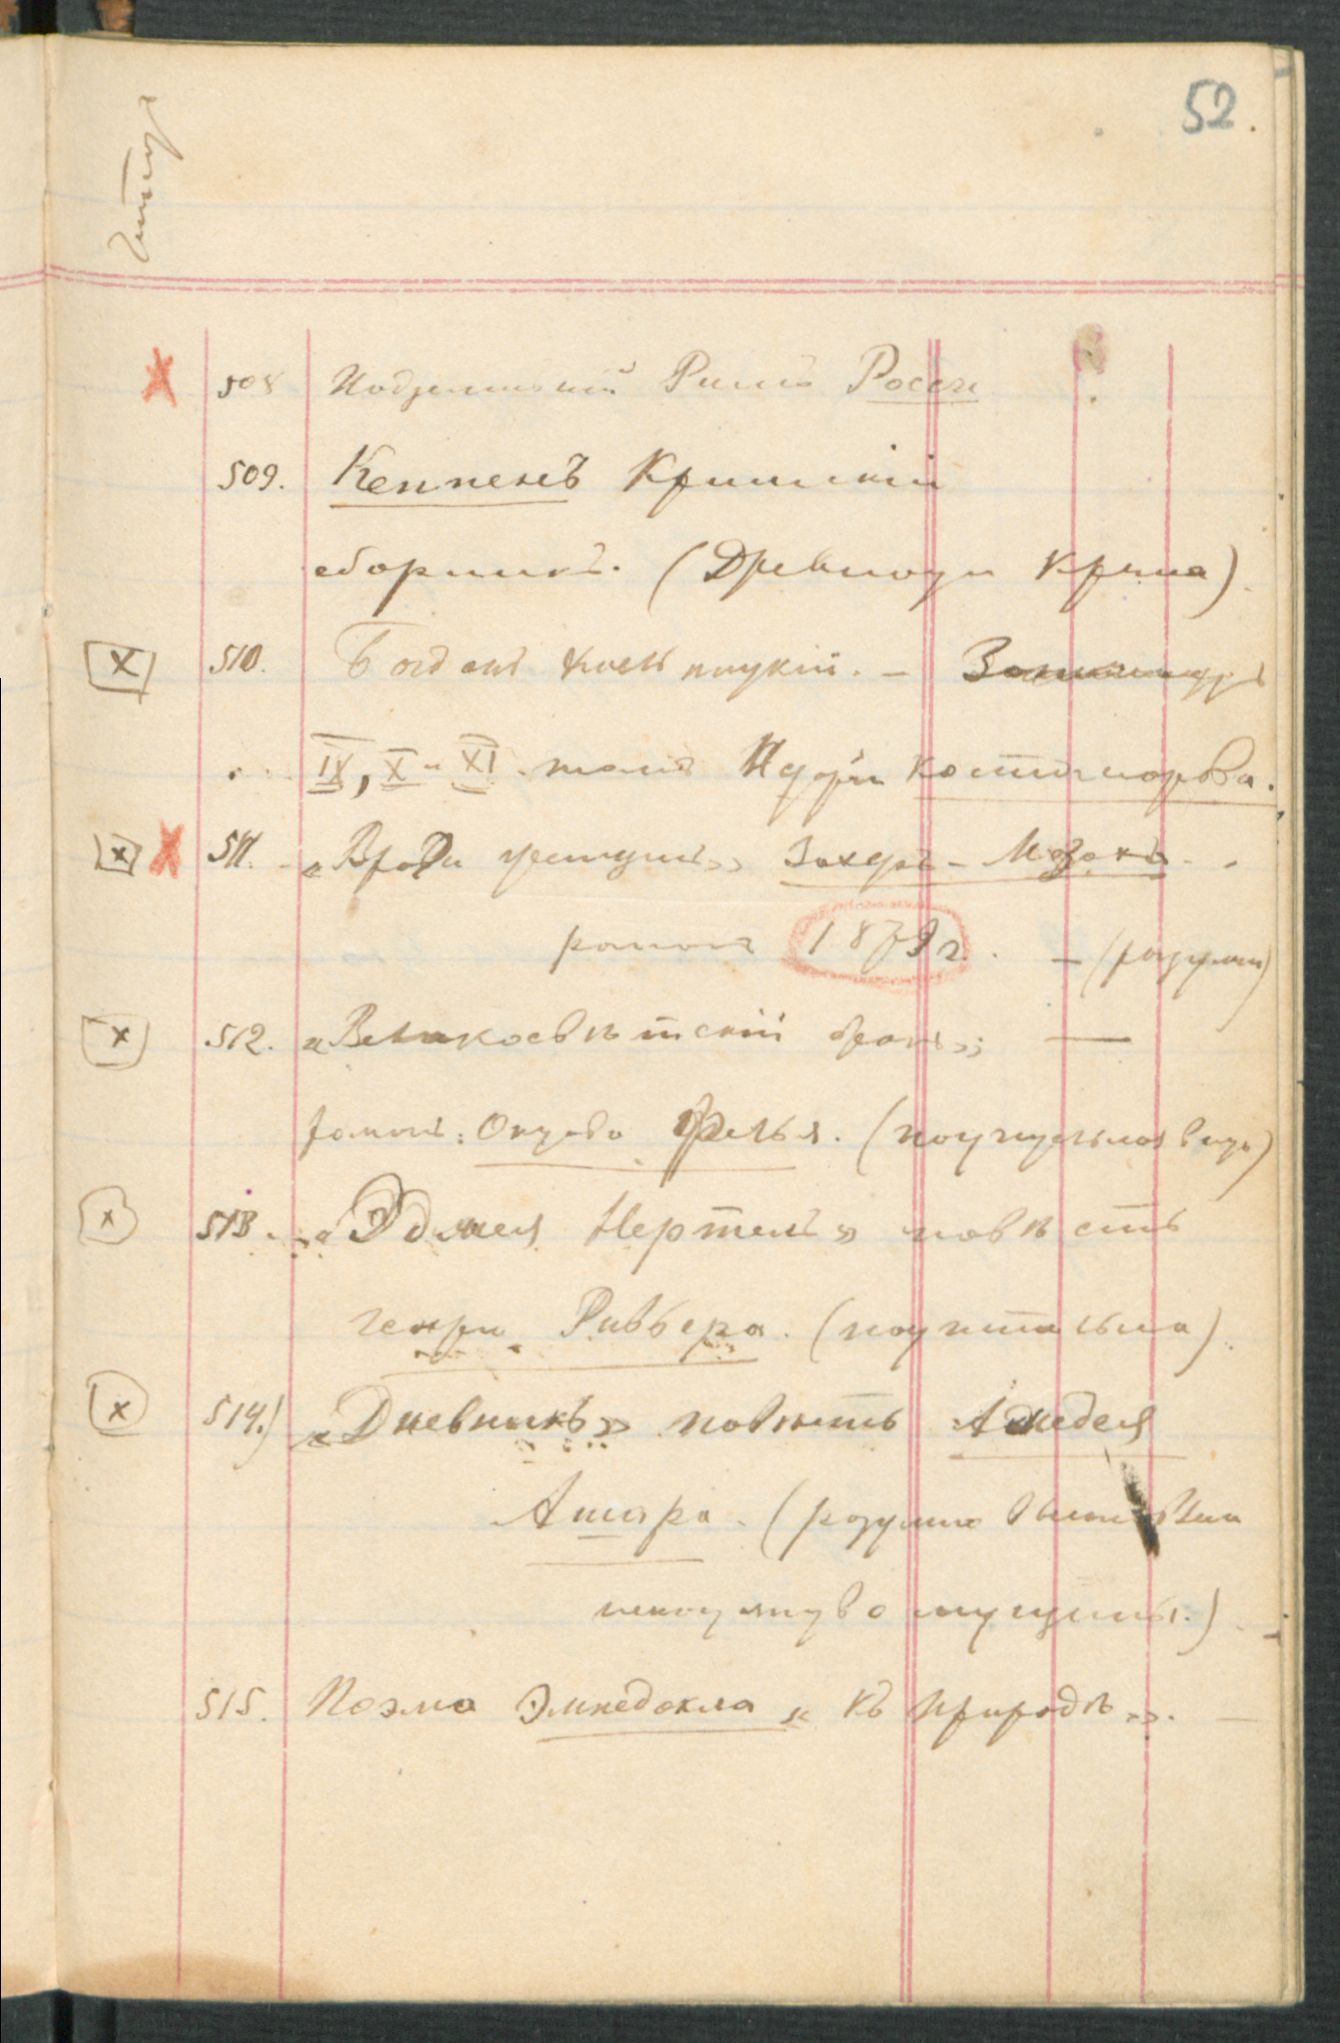 52.
X 508 Подземный Римъ Россi
509. Кеппенъ Крымскiй
сборникъ. (Древности Крыма).
X 510. Богданъ Хмельницкiй. —
IX, X и XI томъ Костомарова.
X X 511. «Захеръ-Мозохъ
романъ 1879 г. — (разумно)
X 512. «Великосвѣтскiй бракъ» —
романъ: Октава Фелье. (поучительная вещь)
X 513. «Эдмея Нертель» повѣсть
генри Ривьера. (поучительна).
X 514.) «Дневникъ» повѣсть Амедея
Ашара. (разумно
мущины.)
515. Поэма Эмпедокла «Къ Природѣ».